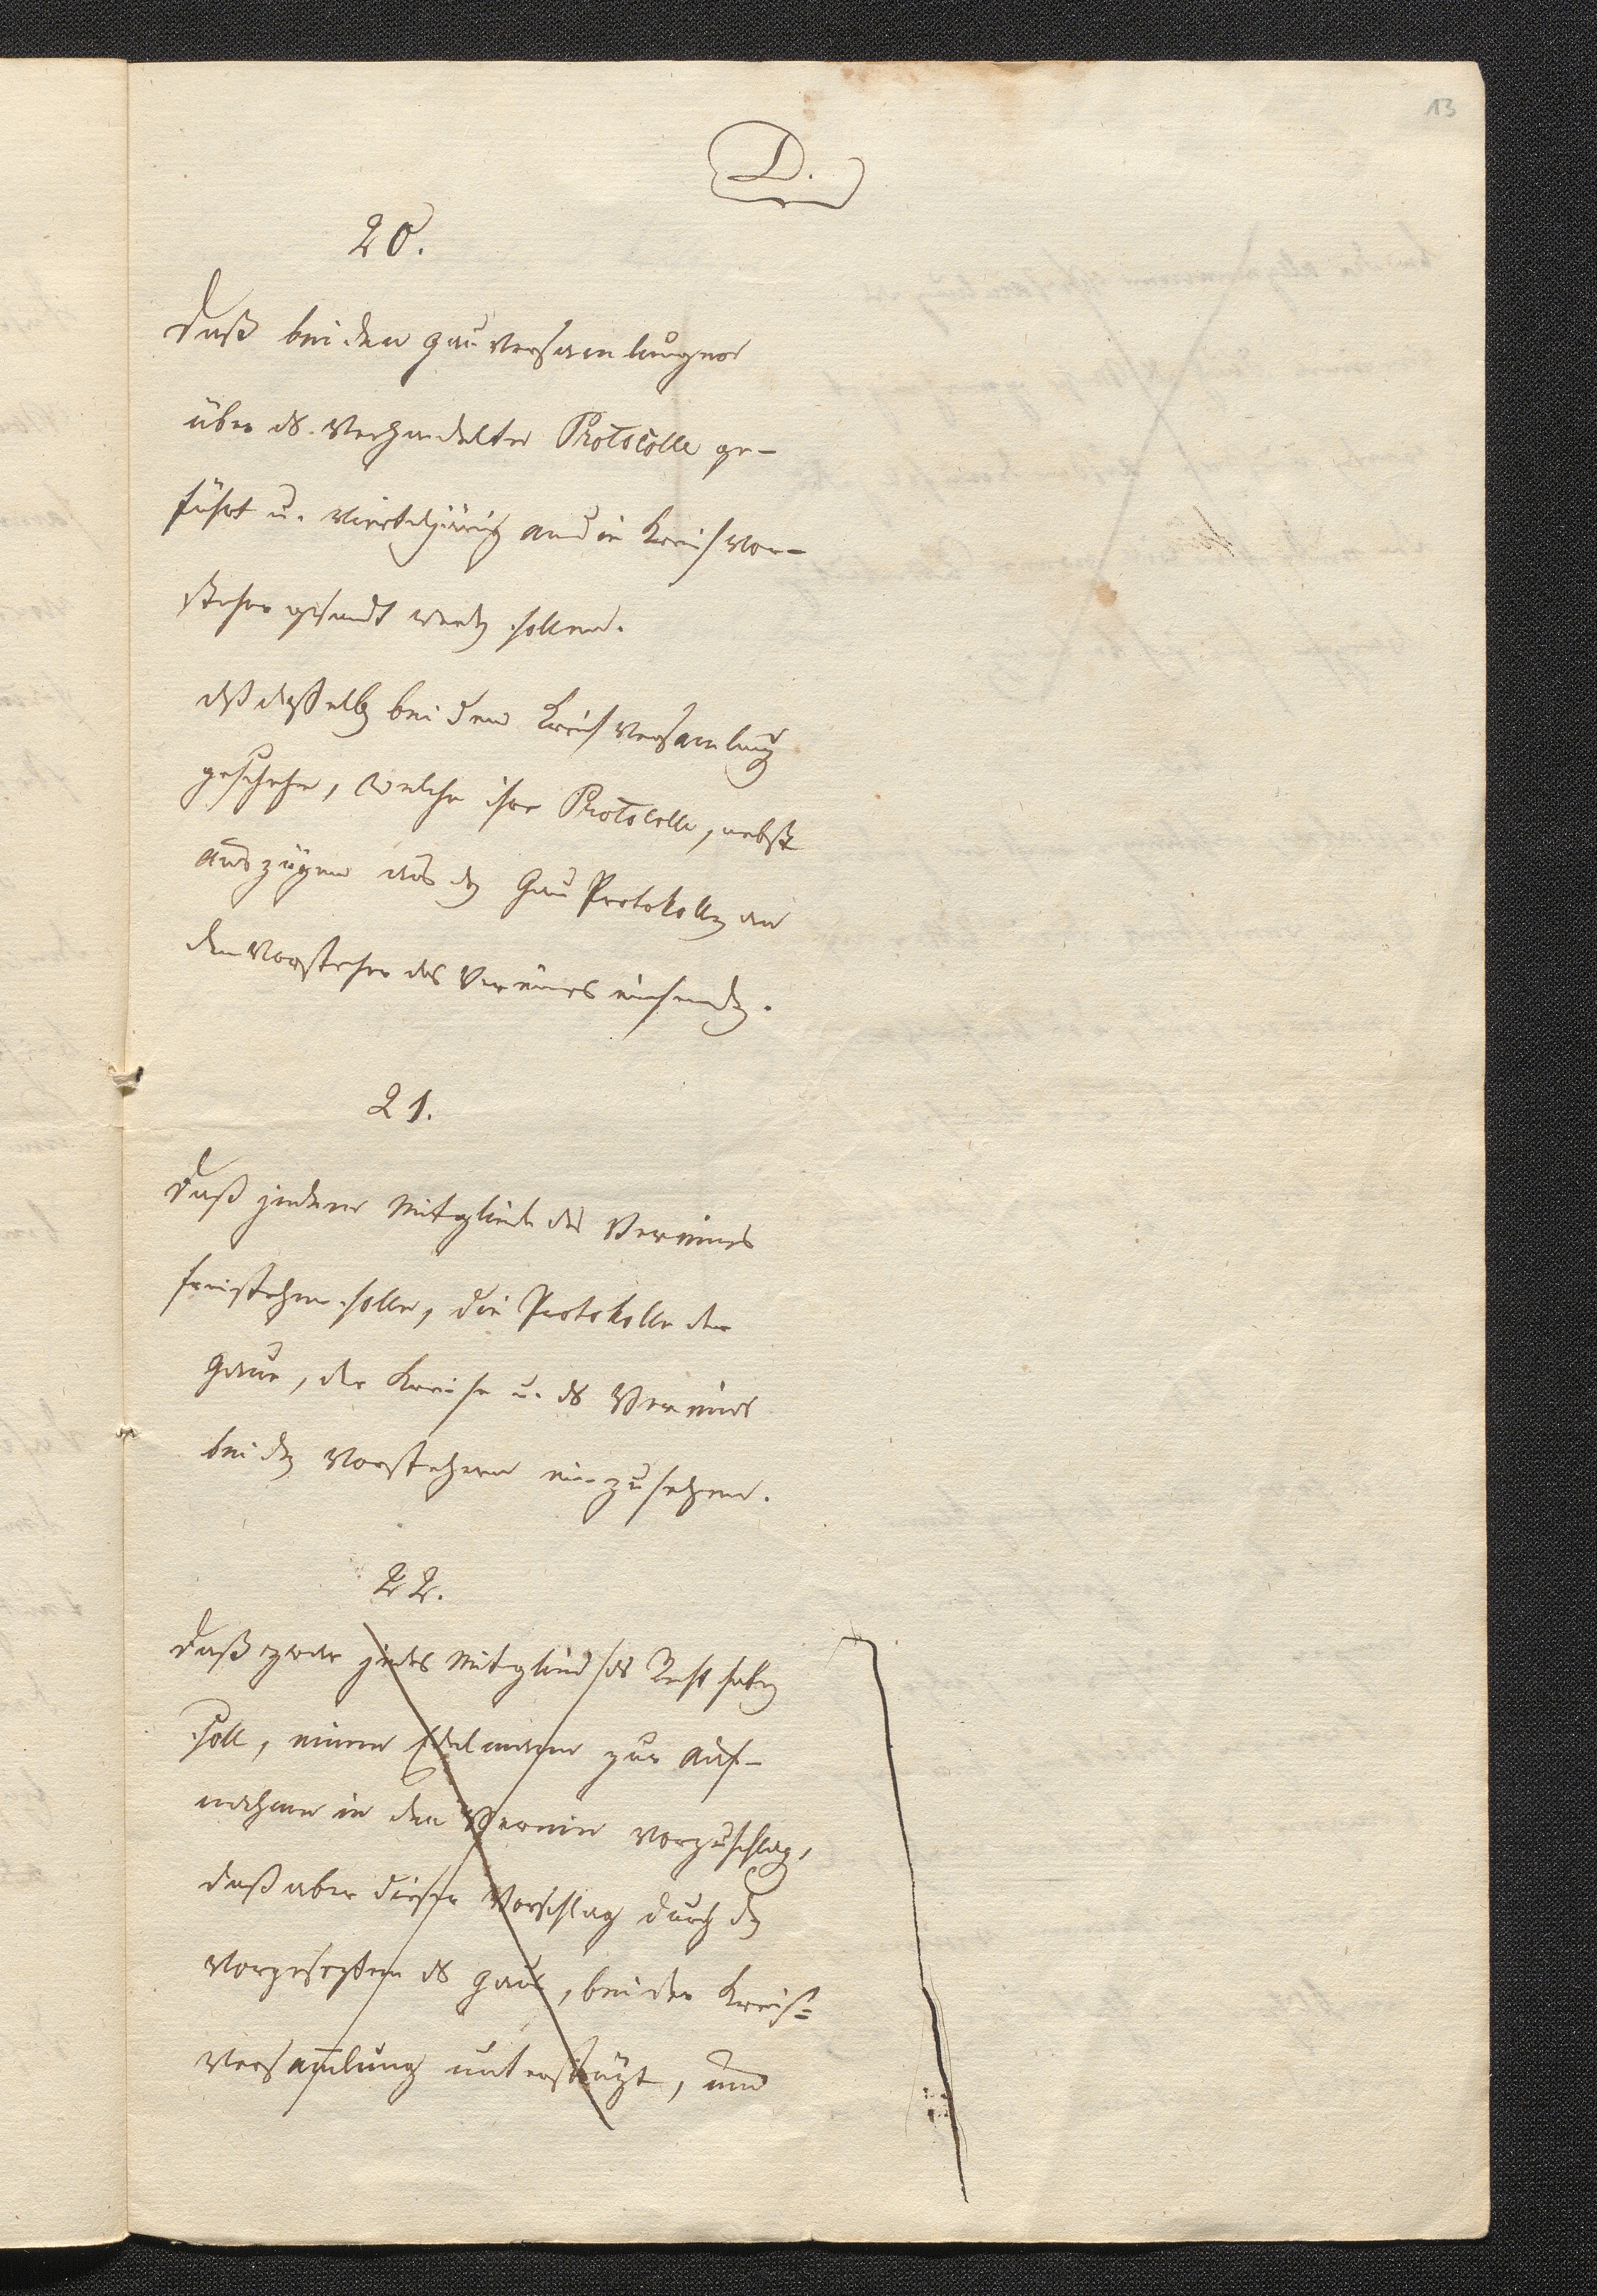 13
D.
20.
Daß bei den Gauversamlungen
über ds. Verhandelte Protocolle ge-
führt u. vierteljärig an die Kreisvor-
steher gesandt werdn sollen.
dß dasselb bei den Kreisversamlung
geschehe, welche ihre Protocolle, nebst
Auszügen aus dn Gau Protokolln an
den Vorsteher des Vereines einsendn.
21.
Daß jedem Mitgliede des Vereines
freistehen solle, die Protokolle der
Gaue, der Kreise u. ds Vereines
bei dn Vorstehern einzusehen.
22.
Daß zwar jedes Mitglied ds Recht habn
soll, einen Edelmann zur Auf-
nahme in den Verein vorzuschlagn,
daß aber dieser Vorschlag durch dn
Vorgesezten ds Gaus, bei der Kreis=
versamlung unterstüzt, und